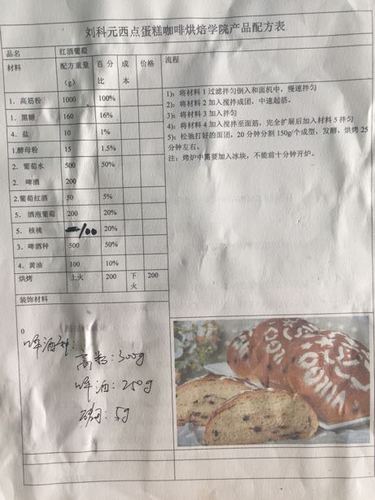 刘科元西点蛋糕咖啡烘焙学院产品配方表
品名 红酒葡萄
材料 配方重量（g） 百分比 成本 价格 流程
1．高筋粉 1000 100%
1．黑糖 160 16%
4．盐 10 1%
1.酵母粉 15 1.5%
2．葡萄水 500 50%
2．啤酒 200
2.葡萄红酒 50 5%
5．酒泡葡萄 200 20%
5．核桃 100 20%
3．啤酒种 500 50%
4．黄油 100 10%
烘烤 上火 200 下火 200
1）：将材料 1 过滤拌匀倒入和面机中，慢速拌匀
2）：将材料 2 加入搅拌成团，中速起筋，
3）：将材料 3 加入拌匀
4）：将材料 4 加入搅拌至面筋，完全扩展后加入材料 5 拌匀
5）：松弛打好的面团，20 分钟分割 150g/个成型，发酵，烘烤 25
分钟左右。
注：烤炉中需要加入冰块，不能前十分钟开炉。
装饰材料
0
啤酒种：
高粉：300g
啤酒：250g
5g